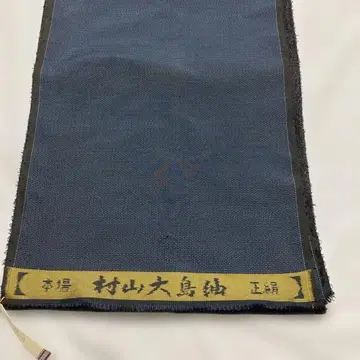 本場 村山大島紬 正絹